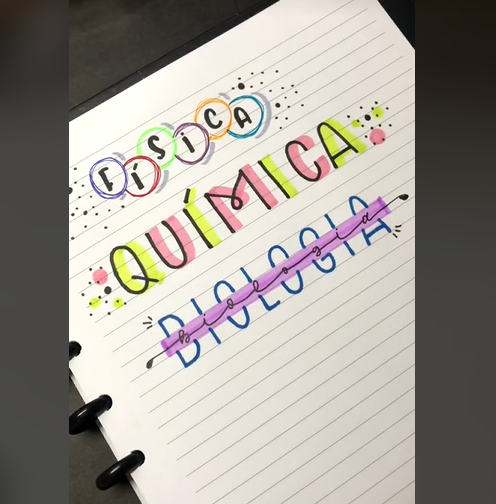 FÍSICA
QUÍMICA
BIOLOGIA
biologia